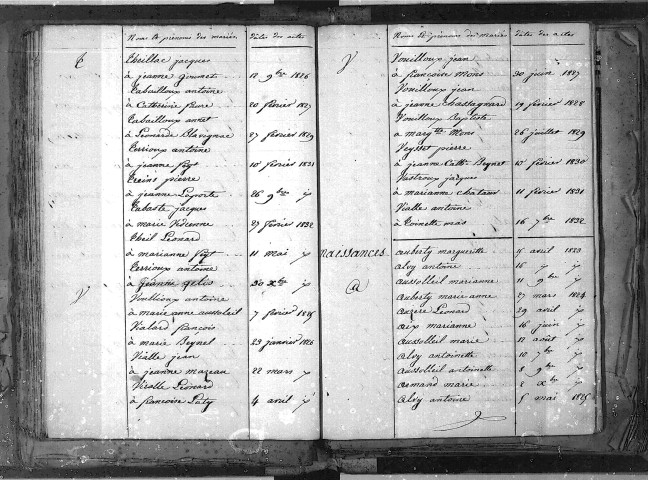 Noms et prénoms des mariés dates des actes
T
Theillac jacques
à jeanne gounet 12 9bre 1826
Tabailloux antoine
à Catherine faure 20 février 1827
Tabailloux annet
à Léonarde Clavignac 27 février 1829
Terrioux antoine
à jeanne feyt 10 février 1831
Treins pierre
à jeanne Laporte 26 9bre
Tabaste jacques
à marie Védrenne 27 février 1832
Theil Léonard
à marianne feyt 11 mai
Terrioux antoine
à jeanne gelis 30 Xbre
V
Vouilloux antoine
à marie anne aussoleil 7 février 1825
Vialard françois
à marie Beynel 23 janvier 1826
Vialle jean
à jeanne mazeau 22 mars
Léonard
à françoise 4 avril
Noms et prénoms des mariés dates des actes
V
Vouilloux jean
à françoise Mons 30 juin 1827
Vouilloux jean
à jeanne chassagnard 19 février 1828
Vouilloux Baptiste
à margte Mons 26 juillet 1829
Veysset pierre
à jeanne Cathe Beynet 10 février 1830
jacques
à marianne chataur 11 février 1831
Vialle antoine
à Toinette mas 16 7bre 1832
naissances
a
auberty marguerite 5 avril 1823
alvy antoine 16
aussolleil marianne 11 9bre
auberty marie anne 27 mars 1824
auzere Léonard 29 avril
aix marianne 16 juin
aussolleil marie 11 août
alvy antoinette 10 7bre
aussolleil antoinette 8 9bre
armand marie 2 Xbre
alvy antoine 5 mai 1825